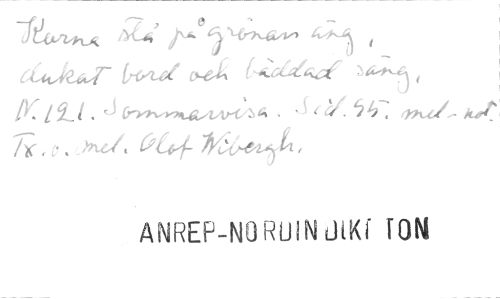 Korna stå på grönan äng,
dukat bord och bäddad säng,
N. 121. Sommarvisa. Sid. 95. mel-not.
Tx. o. mel. Olof Wibergh.
ANREP-NORDIN DIKT TON